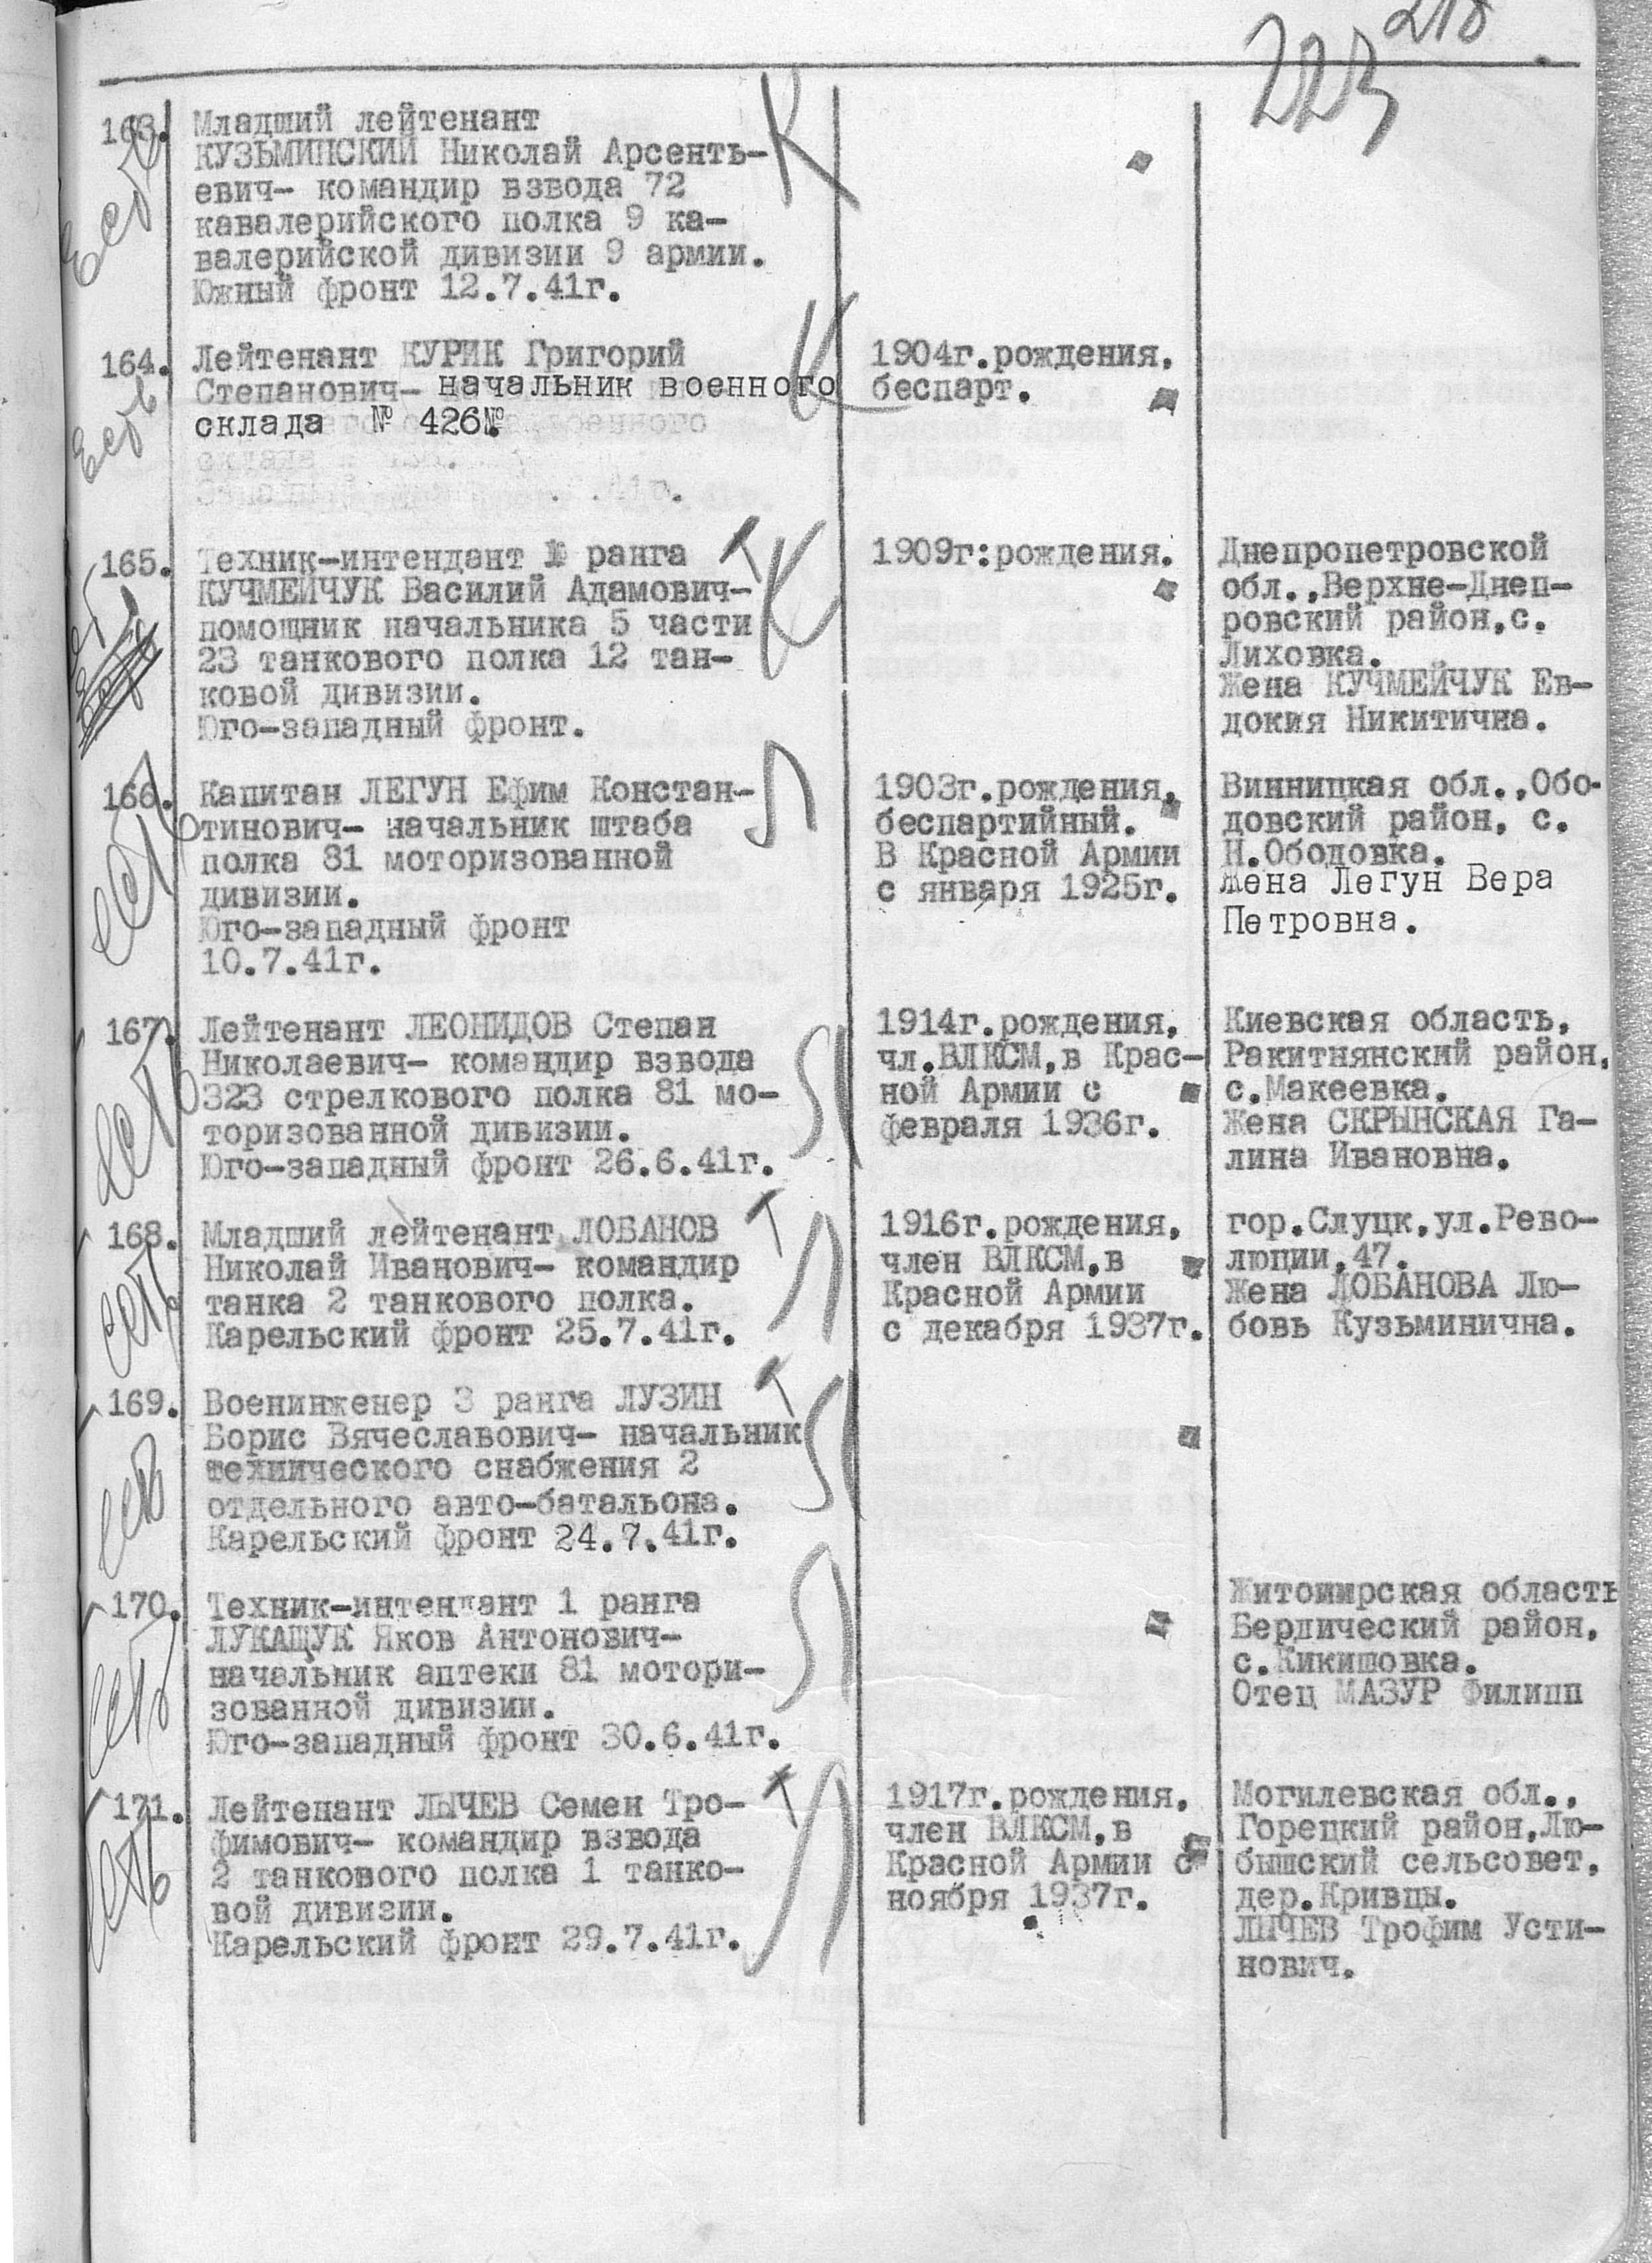 218
223
163. Младший лейтенант
КУЗЬМИНСКИЙ Николай Арсенть-
евич- командир взвода 72
кавалерийского полка 9 ка-
валерийской дивизии 9 армии.
Южный фронт 12.7.41г.
К
Есть
164. Лейтенант КУРИК Григорий
Степанович- начальник военного
склада № 426№
К
Есть
1904г.рождения,
беспарт.
165. Техник-интендант ранга
КУЧМЕЙЧУК Василий Адамович-
помощник начальника 5 части
23 танкового полка 12 тан-
ковой дивизии.
Юго-западный фронт.
Т
К
1909г:рождения.
Днепропетровской
обл.,Верхне-Днеп-
ровский район,с.
Лиховка.
Жена КУЧМЕЙЧУК Ев-
докия Никитична.
166. Капитан ЛЕГУН Ефим Констан-
тинович- начальник штаба
полка 81 моторизованной
дивизии.
Юго-западный фронт
10.7.41г.
Л
есть
1903г.рождения,
беспартийный.
В Красной Армии
с января 1925г.
Винницкая обл.,Обо-
довский район, с.
Н.Ободовка.
Жена Легун Вера
Петровна.
167. Лейтенант ЛЕОНИДОВ Степан
Николаевич- командир взвода
323 стрелкового полка 81 мо-
торизованной дивизии.
Юго-западный фронт 26.6.41г.
Л
есть
1914г.рождения,
чл.ВЛКСМ,в Крас-
ной Армии с
февраля 1936г.
Киевская область,
Ракитнянский район,
с.Макеевка.
Жена СКРЫНСКАЯ Га-
лина Ивановна.
168. Младший лейтенант ЛОБАНОВ
Николай Иванович- командир
танка 2 танкового полка.
Карельский фронт 25.7.41г.
Т
Л
есть
1916г.рождения,
член ВЛКСМ,в
Красной Армии
с декабря 1937г.
гор.Слуцк,ул.Рево-
люции,47.
Жена ЛОБАНОВА Лю-
бовь Кузьминична.
169. Военинженер 3 ранга ЛУЗИН
Борис Вячеславович- начальник
технического снабжения 2
отдельного авто-батальона.
Карельский фронт 24.7.41г.
Т
Л
есть
170. Техник-интендант 1 ранга
ЛУКАЩУК Яков Антонович-
начальник аптеки 81 мотори-
зованной дивизии.
Юго-западный фронт 30.6.41г.
Л
есть
Житомирская область
Бердический район,
с.Кикишовка.
Отец МАЗУР Филипп
171. Лейтенант ЛЫЧЕВ Семен Тро-
фимович- командир взвода
2 танкового полка 1 танко-
вой дивизии.
Карельский фронт 29.7.41г.
Т
Л
есть
1917г.рождения,
член ВЛКСМ,в
Красной Армии с
ноября 1937г.
Могилевская обл.,
Горецкий район,Лю-
бышский сельсовет,
дер.Кривцы.
ЛЫЧЕВ Трофим Усти-
нович.